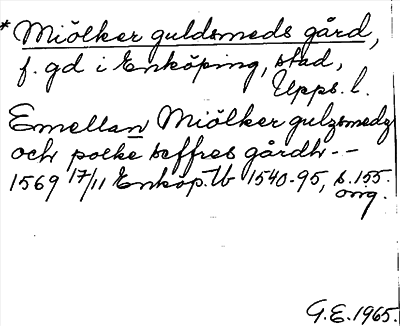 * Miölker guldsmeds gård,
f. gd i Enköping, stad,
Upps. l.
Emellan Miölker gulzsmedz
och polke seffres gårdh --
1569 17/11 Enköp. tb 1540-95, s. 155.
orig.
G.E. 1965.